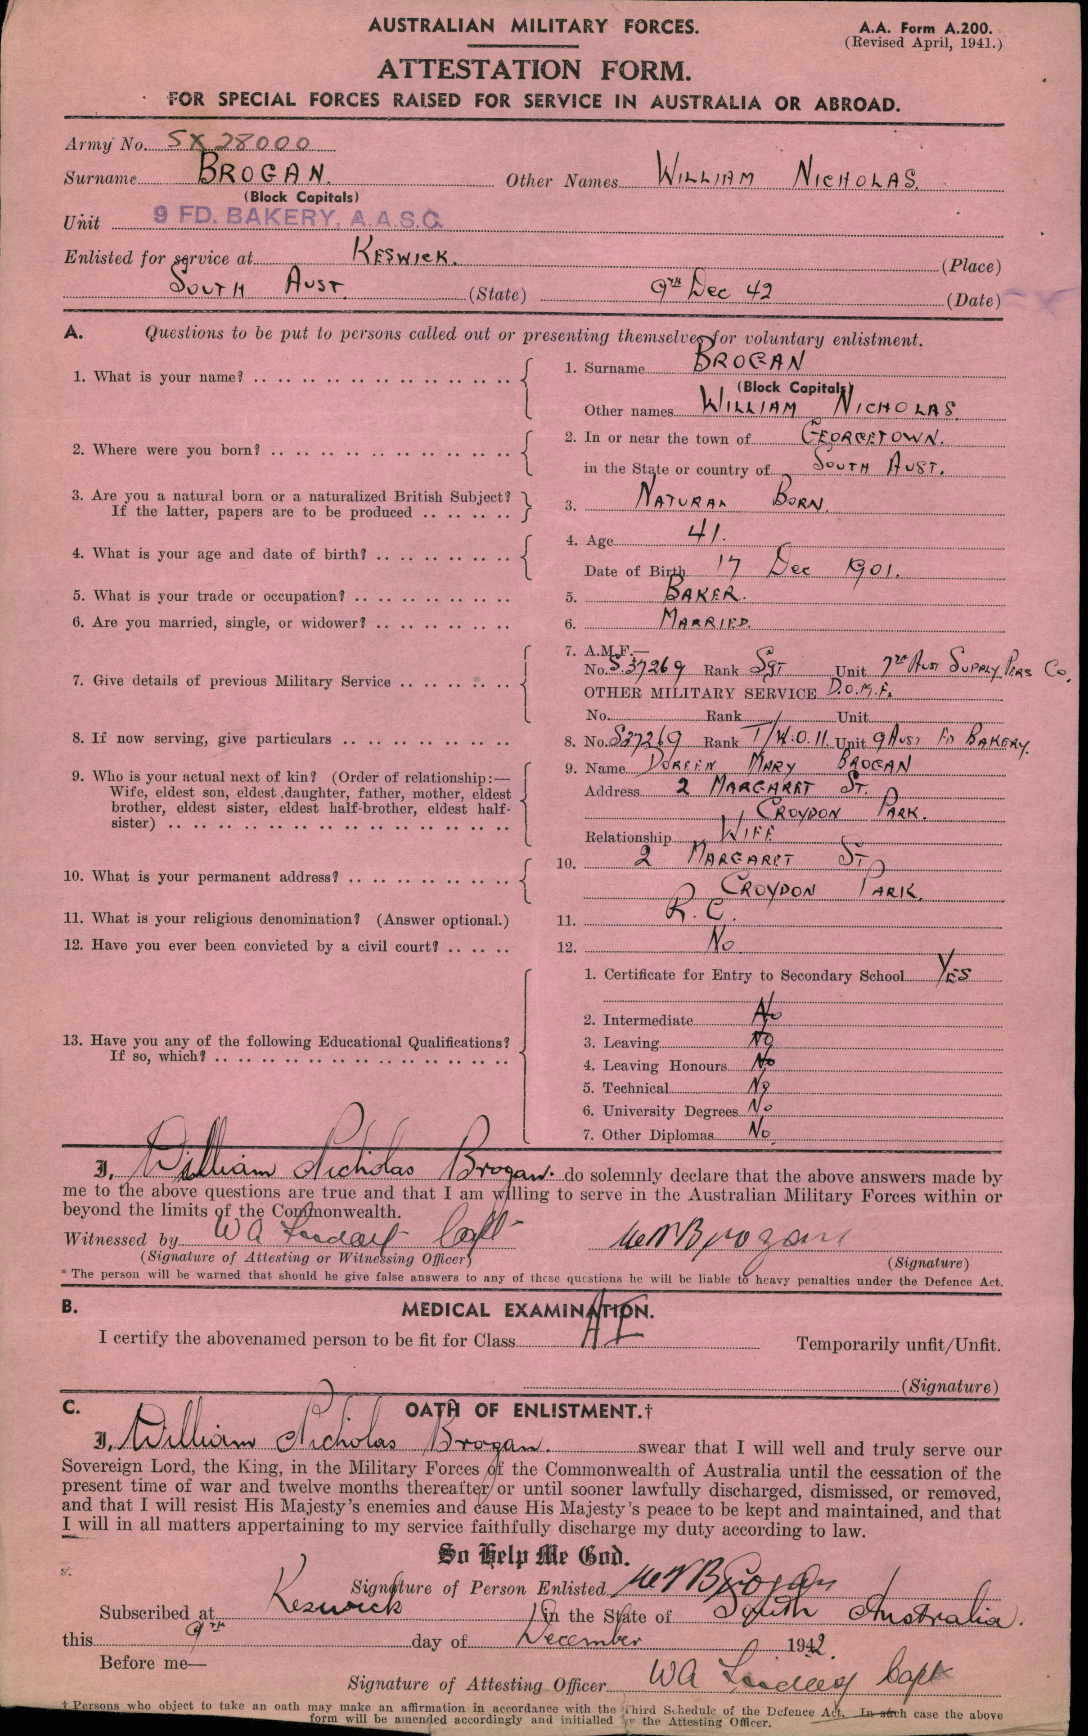 AUSTRALIAN MILITARY FORCES.
A.A. Form A.200.
(Revised April, 1941.)
ATTESTATION FORM.
FOR SPECIAL FORCES RAISED FOR SERVICE IN AUSTRALIA OR ABROAD.
Army No. SX 28000
Surname BROGAN. Other Names WILLIAM NICHOLAS.
(Block Capitals)
Unit 9 FD. BAKERY, A.A.S.C.
Enlisted for service at KESWICK. (Place)
SOUTH AUST. (State) 9TH DEC 42 (Date)
A. Questions to be put to persons called out or presenting themselves for voluntary enlistment.
1. What is your name? 1. Surname BROGAN
(Block Capitals)
Other names WILLIAM NICHOLAS.
2. Where were you born? 2. In or near the town of GEORGETOWN.
in the State or country of SOUTH AUST.
3. Are you a natural born or a naturalized British Subject? 3. NATURAL BORN.
If the latter, papers are to be produced
4. What is your age and date of birth? 4. Age 41.
Date of Birth 17 DEC 1901.
5. What is your trade or occupation? 5. BAKER.
6. Are you married, single, or widower? 6. MARRIED.
7. Give details of previous Military Service 7. A.M.F.—
No. S.37269 Rank SGT Unit 7TH AUST SUPPLY PERS CO.
OTHER MILITARY SERVICE D.O.M.F.
No. Rank / Unit
8. If now serving, give particulars 8. No. S37269 Rank T/W.O.II. Unit 9 AUST FD BAKERY.
9. Who is your actual next of kin? (Order of relationship:— 9. Name DOREEN MARY BROGAN
Wife, eldest son, eldest daughter, father, mother, eldest Address 2 MARGARET ST.
brother, eldest sister, eldest half-brother, eldest half- CROYDON PARK.
sister) Relationship WIFE
10. What is your permanent address? 10. 2 MARGARET ST
CROYDON PARK.
11. What is your religious denomination? (Answer optional.) 11. R.C.
12. Have you ever been convicted by a civil court? 12. NO.
13. Have you any of the following Educational Qualifications?
If so, which?
1. Certificate for Entry to Secondary School YES
2. Intermediate No
3. Leaving No
4. Leaving Honours No
5. Technical No
6. University Degrees No
7. Other Diplomas No.
I, William Nicholas Brogan. do solemnly declare that the above answers made by
me to the above questions are true and that I am willing to serve in the Australian Military Forces within or
beyond the limits of the Commonwealth.
Witnessed by W A Capt W N Brogan
(Signature of Attesting or Witnessing Officer) (Signature)
* The person will be warned that should he give false answers to any of these questions he will be liable to heavy penalties under the Defence Act.
B. MEDICAL EXAMINATION.
I certify the abovenamed person to be fit for Class AI Temporarily unfit/Unfit.
(Signature)
C. OATH OF ENLISTMENT.†
I, William Nicholas Brogan. swear that I will well and truly serve our
Sovereign Lord, the King, in the Military Forces of the Commonwealth of Australia until the cessation of the
present time of war and twelve months thereafter or until sooner lawfully discharged, dismissed, or removed,
and that I will resist His Majesty's enemies and cause His Majesty's peace to be kept and maintained, and that
I will in all matters appertaining to my service faithfully discharge my duty according to law.
So Help Me God.
Signature of Person Enlisted W N Brogan
Subscribed at Keswick in the State of South Australia.
this 9th day of December 1942.
Before me—
Signature of Attesting Officer W A Capt
† Persons who object to take an oath may make an affirmation in accordance with the Third Schedule of the Defence Act. In such case the above
form will be amended accordingly and initialled by the Attesting Officer.